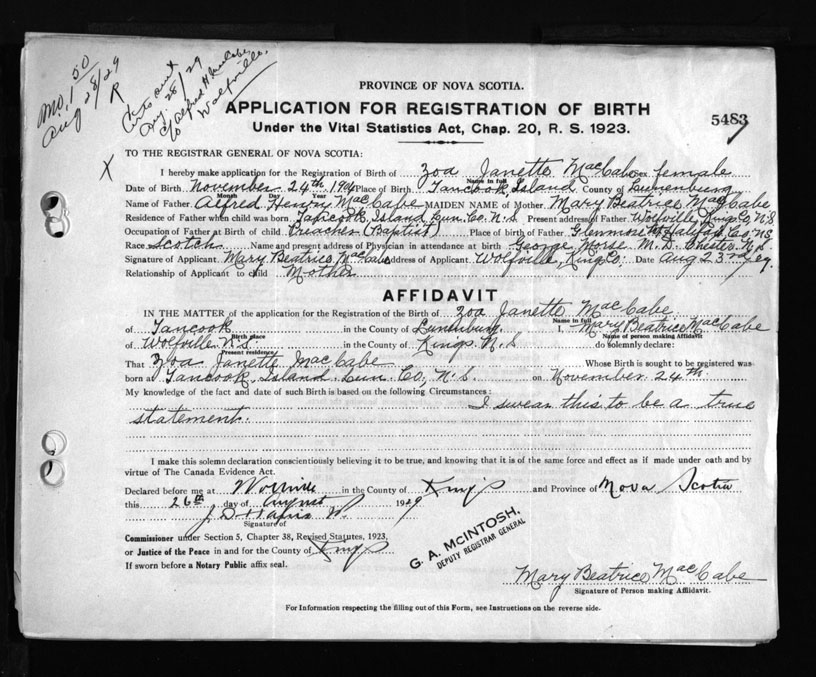 Mo. 1 50
Aug 28/29
R
Aug. 28/29
c/o Alfred H MacCabe
Wolfville.
PROVINCE OF NOVA SCOTIA.
APPLICATION FOR REGISTRATION OF BIRTH
Under the Vital Statistics Act, Chap. 20, R. S. 1923.
5487
X
TO THE REGISTRAR GENERAL OF NOVA SCOTIA:
I hereby make application for the Registration of Birth of Zoa Janette MacCabe female
Name in full
Date of Birth November 24th Place of Birth Tancook Island County of Lunenburg
Month Day Year
Name of Father Alfred Henry MacCabe MAIDEN NAME of Mother Mary Beatrice MacCabe
Residence of Father when child was born Tancook Island Lun. Co. N.S Present address of Father Wolfville, Kings Co N.S
Occupation of Father at Birth of child Preacher (Baptist) Place of birth of Father Glenmore Halifax Co. N.S
Race Scotch Name and present address of Physician in attendance at birth George Morse M.D. Chester N.S
Signature of Applicant Mary Beatrice MacCabe Address of Applicant Wolfville, King Co. Date Aug 23rd
Relationship of Applicant to child Mother
AFFIDAVIT
IN THE MATTER of the application for the Registration of the Birth of Zoa Janette MacCabe
Name in full
of Tancook in the County of Lunenburg I, Mary Beatrice MacCabe
Birth place
Name of person making Affidavit
of Wolfville N.S. in the County of Kings N.S do solemnly declare:
Present residence
That Zoa Janette MacCabe Whose Birth is sought to be registered was
born at Tancook Island Lun Co, N.S. on November 24th
My knowledge of the fact and date of such Birth is based on the following Circumstances: I swear this to be a true
statement.
I make this solemn declaration conscientiously believing it to be true, and knowing that it is of the same force and effect as if made under oath and by
virtue of The Canada Evidence Act.
Declared before me at Wolfville in the County of Kings and Province of Nova Scotia
this 26th day of August 1929
Signature of
Commissioner under Section 5, Chapter 38, Revised Statutes, 1923,
or Justice of the Peace in and for the County of Kings
If sworn before a Notary Public affix seal.
G. A. McINTOSH,
DEPUTY REGISTRAR GENERAL
Mary Beatrice MacCabe
Signature of Person making Affidavit.
For Information respecting the filling out of this Form, see Instructions on the reverse side.